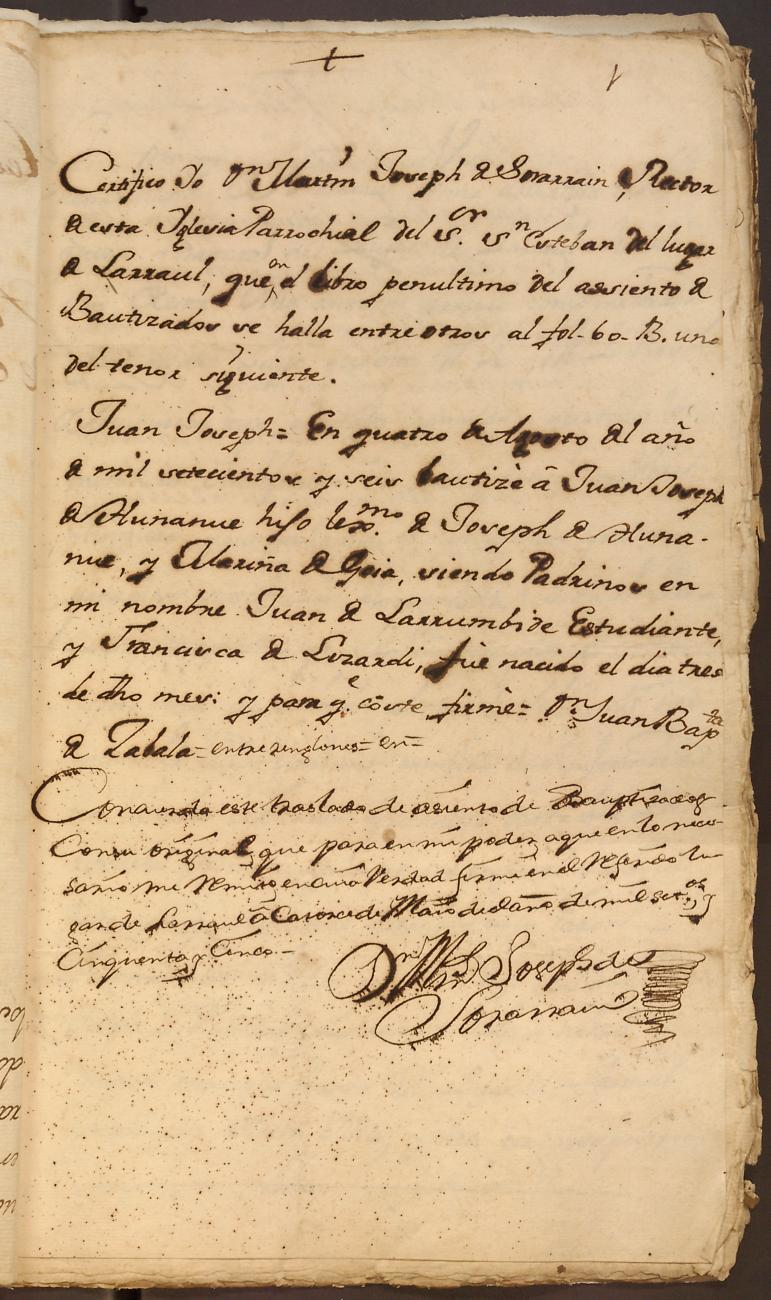 +
1
Certifico Yo Dn Martin Joseph de Sorarrain, Rector
de esta Yglesia Parrochial del Sor. Sn Esteban del lugar
de Larraul, que en el libro penultimo del assiento de
Bautizados se halla entre otros al fol. 60. B. uno
del tenor siguiente.
Juan Joseph= En quatro de Agosto del año
de mil setecientos y seis bautizè â Juan Joseph
de Hunanue hijo lexmo. de Joseph de Huna-
nue, y Mariña de Goia, siendo Padrinos en
mi nombre Juan de Larrumbide Estudiante,
y Francisca de Lizardi, fue nacido el dia tres
de dho mes: y para qe cōste firmè= Dn. Juan Bapta
de Zabala= entrerenglones= en=
Concuerda este traslado de asiento de Bauptizados
Con su original que para en mi poder a que en lo nece-
sario me remito en cuia Verdad firme en el referido lu-
gar de Larraul â Catorce de del año de mil setos. y
Cinquenta y Cinco=
Dn Mrn Joseph de
Sorarrain